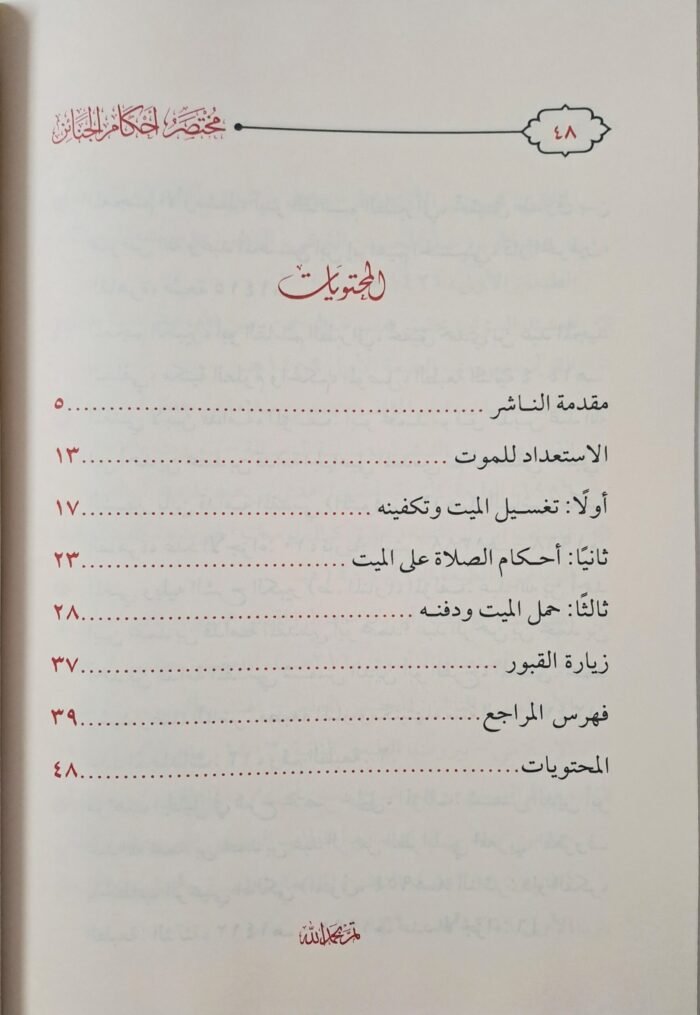 ٤٨ مُخْتَصَرُ أَحْكَامِ الجَنَائِز
المحتويات
مقدمة الناشر ٥
الاستعداد للموت ١٣
أولًا: تغسيل الميت وتكفينه ١٧
ثانيًا: أحكام الصلاة على الميت ٢٣
ثالثًا: حمل الميت ودفنه ٢٨
زيارة القبور ٣٧
فهرس المراجع ٣٩
المحتويات ٤٨
تم بحمد الله